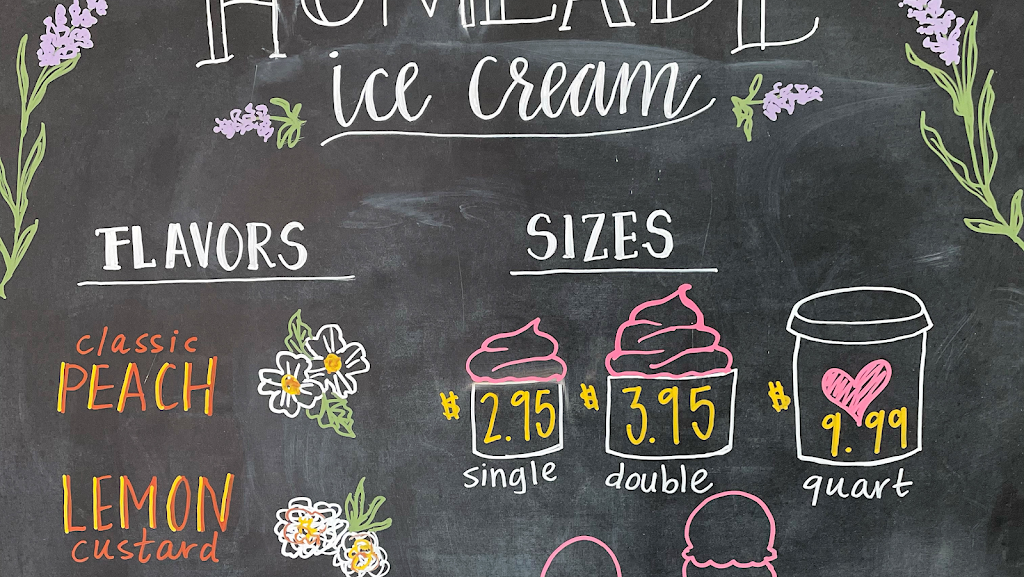 HOMEMADE
ice cream
FLAVORS
classic
PEACH
LEMON
custard
SIZES
$ 2.95 $ 3.95 $ 9.99
single double quart